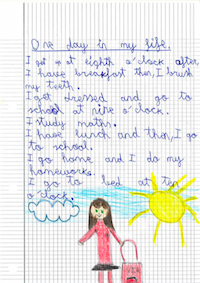 One day in my life.
I get up at eighth o'clock after,
I have breakfast then, I brush
my teeth.
I get dressed and go to
school at nine o'clock.
I study maths.
I have lunch and then, I go
to school.
I go home and I do my
homeworks.
I go to bed at ten
o'clock.